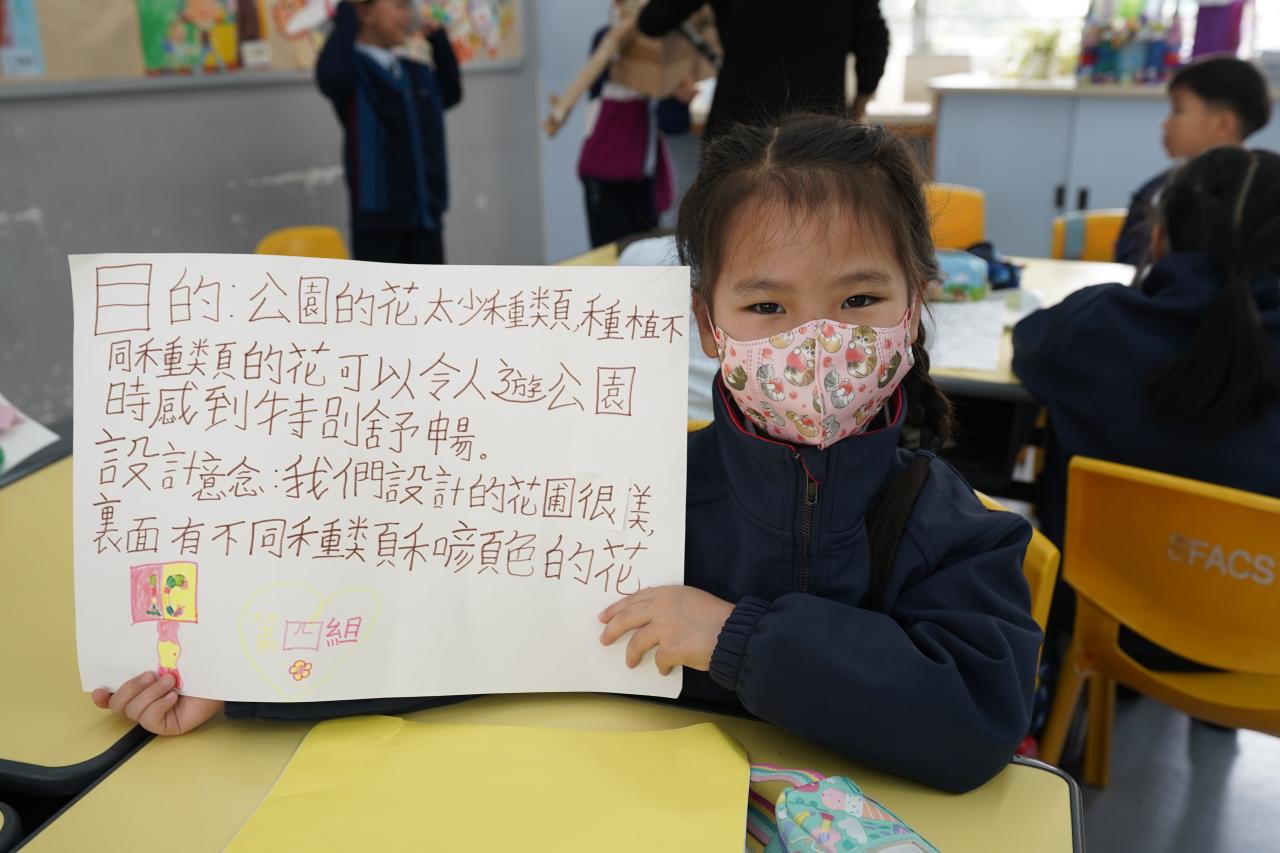 目的:公園的花太少種類,種植不
同種類的花可以令人遊公園
時感到特別舒暢。
設計意念:我們設計的花圃很美,
裏面有不同種類和顏色的花
第四組
SFACS